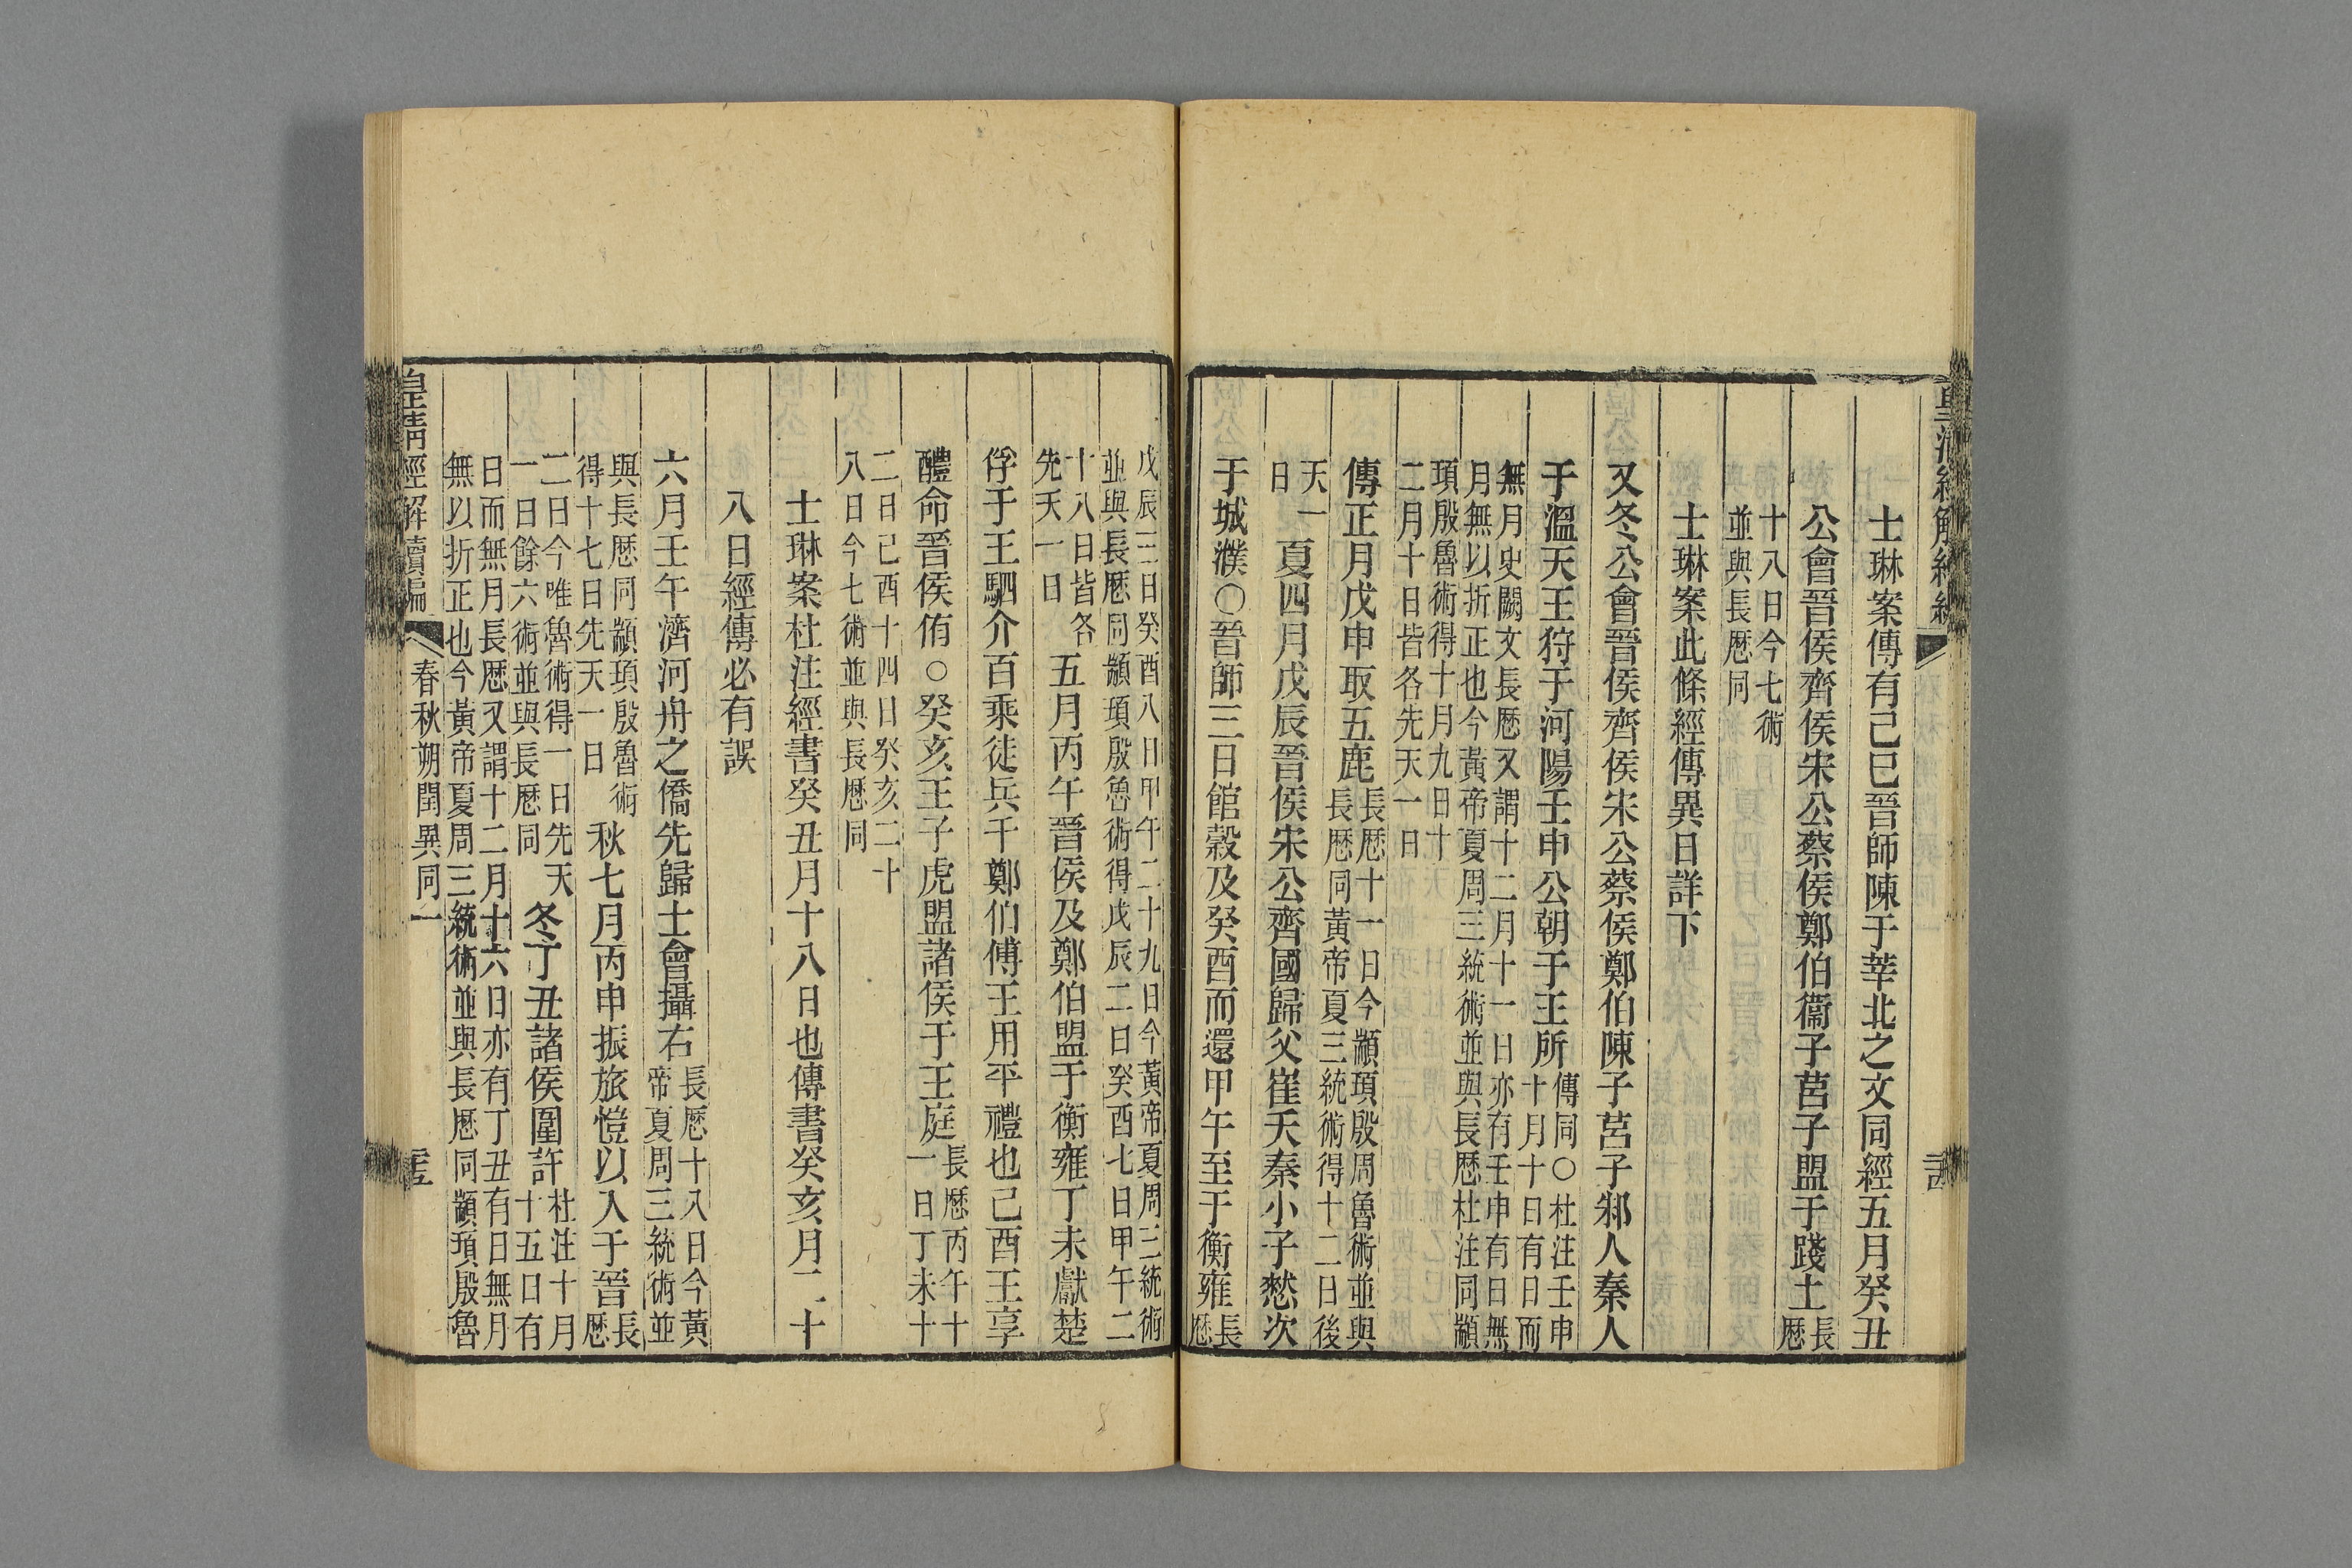 士琳案傳有己巳晉師陳于莘北之文同經五月癸丑
公會晉侯齊侯宋公蔡侯鄭伯衞子莒子盟于踐土長
厯
十八日今七術
並與長厯同
士琳案此條經傳異日詳下
又冬公會晉侯齊侯宋公蔡侯鄭伯陳子莒子邾人秦人
于溫天王狩于河陽壬申公朝于王所傳同○杜注壬申
十月十日有日而
無月史闕文長厯又謂十二月十一日亦有壬申有日無
月無以折正也今黃帝夏周三統術並與長厯杜注同顓
頊殷魯術得十月九日十
二月十日皆各先天一日
傳正月戊申取五鹿長厯十一日今顓頊殷周魯術並與
長厯同黃帝夏三統術得十二日後
天一
日
夏四月戊辰晉侯宋公齊國歸父崔夭秦小子憖次
于城濮○晉師三日館穀及癸酉而還甲午至于衡雍長
厯
戊辰三日癸酉八日甲午二十九日今黃帝夏周三統術
並與長厯同顓頊殷魯術得戊辰二日癸酉七日甲午二
十八日皆各
先天一日
五月丙午晉侯及鄭伯盟于衡雍丁未獻楚
俘于王駟介百乘徒兵千鄭伯傅王用平禮也己酉王享
醴命晉侯侑○癸亥王子虎盟諸侯于王庭長厯丙午十
一日丁未十
二日己酉十四日癸亥二十
八日今七術並與長厯同
士琳案杜注經書癸丑月十八日也傳書癸亥月二十
八日經傳必有誤
六月壬午濟河舟之僑先歸士會攝右長厯十八日今黃
帝夏周三統術並
與長厯同顓頊殷魯術
得十七日先天一日
秋七月丙申振旅愷以入于晉長
厯
二日今唯魯術得一日先天
一日餘六術並與長厯同
冬丁丑諸侯圍許杜注十月
十五日有
日而無月長厯又謂十二月十六日亦有丁丑有日無月
無以折正也今黃帝夏周三統術並與長厯同顓頊殷魯
皇清經解續編
春秋朔閏異同一